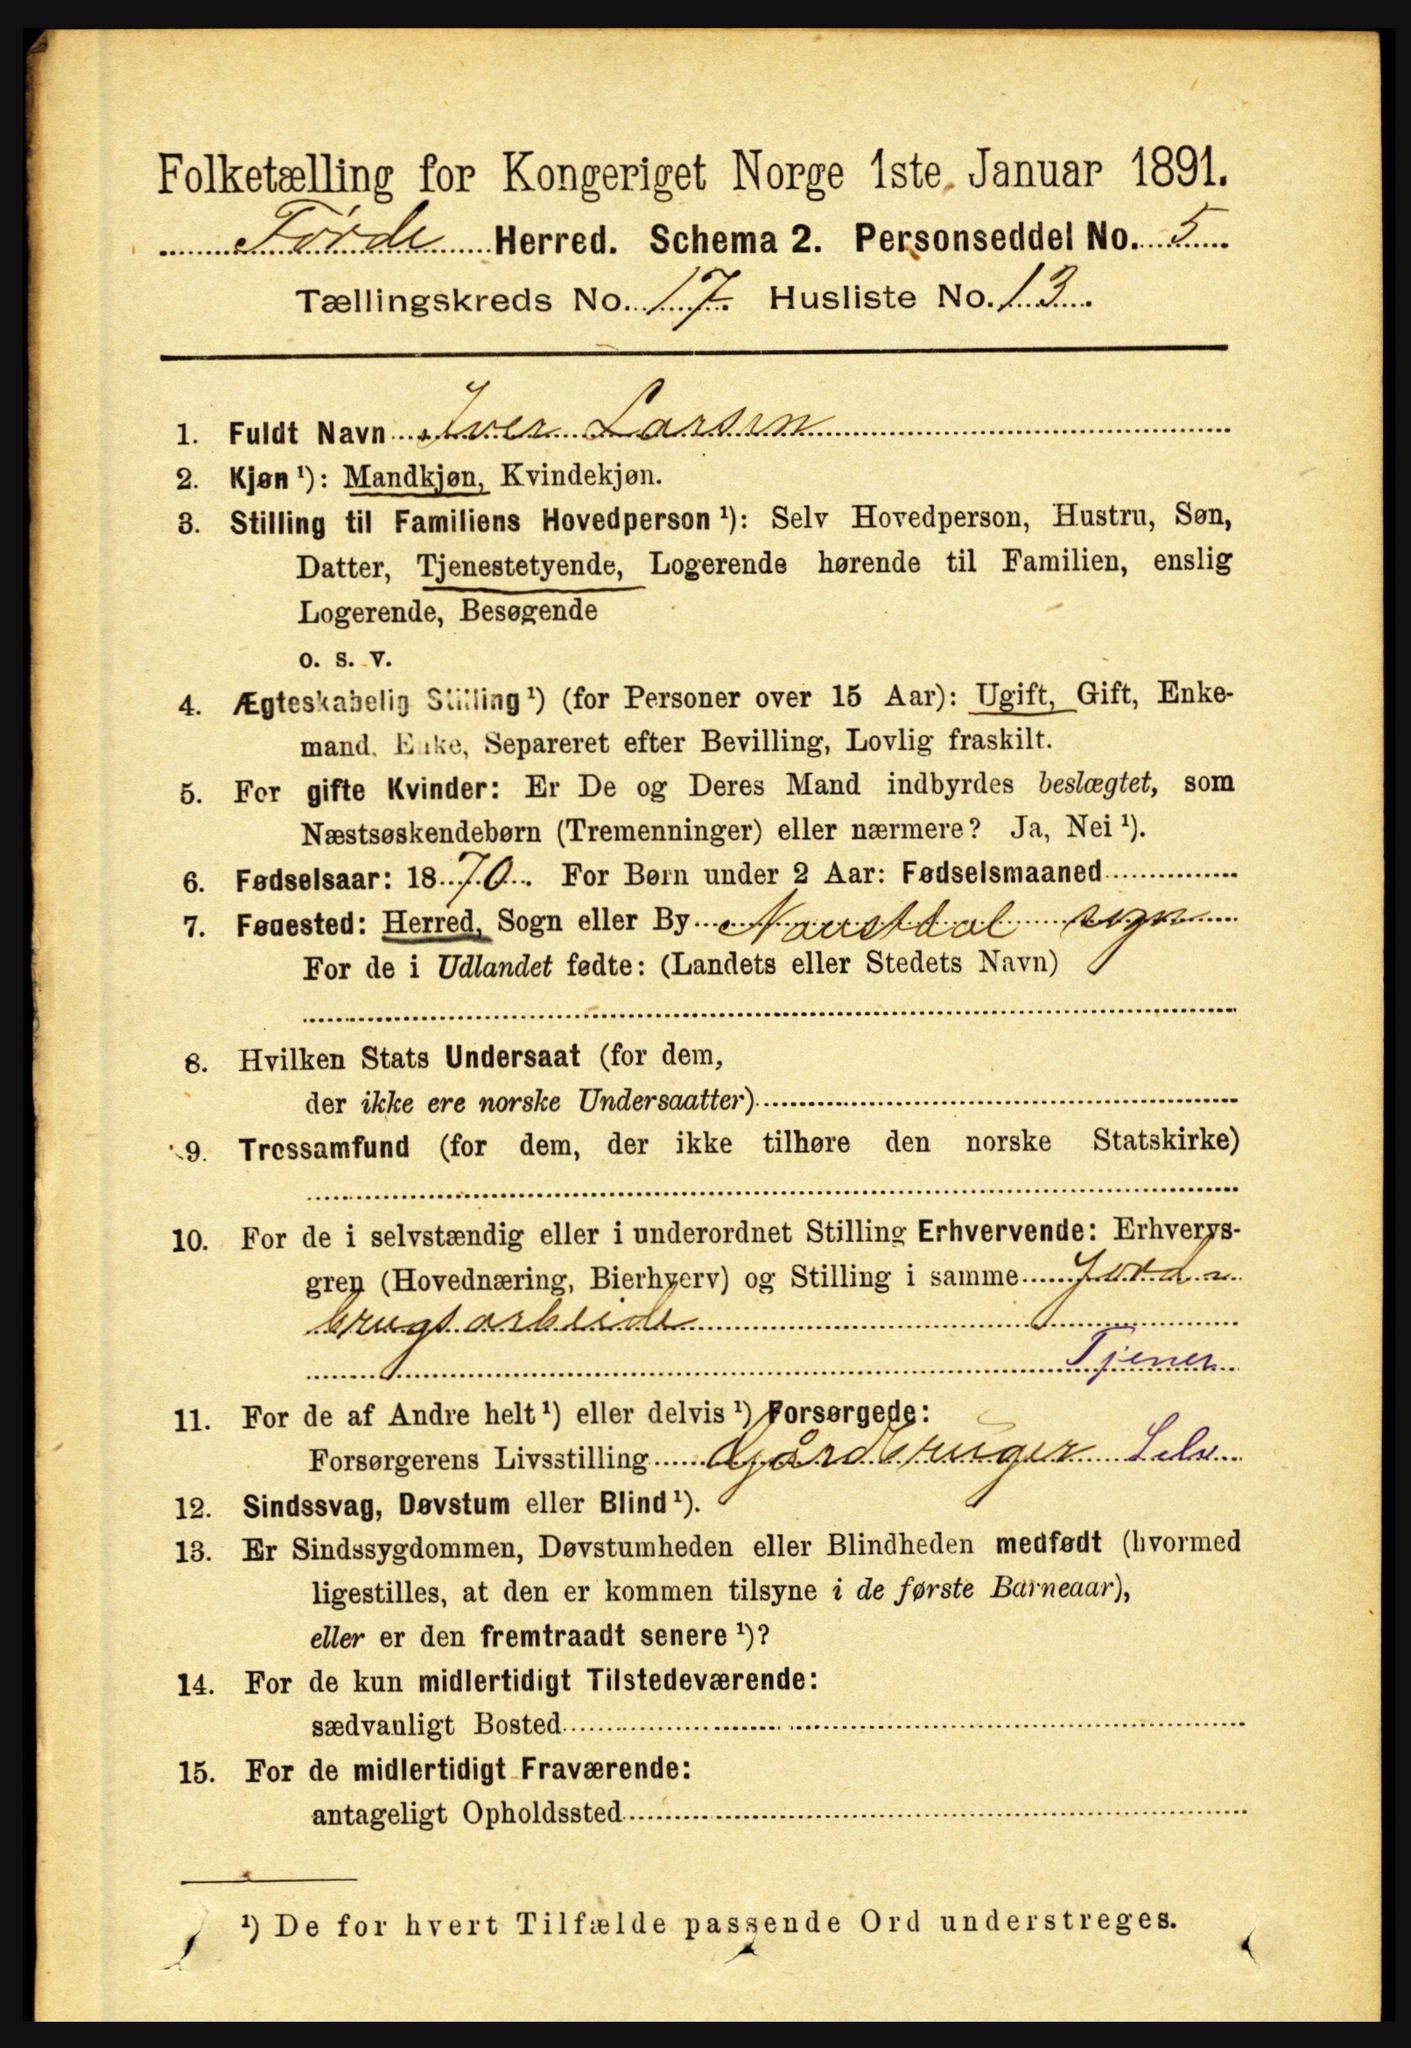 Folketælling for Kongeriget Norge 1ste Januar 1891.
Førde Herred. Schema 2. Personseddel No. 5
Tællingskreds No. 17. Husliste No. 13.
1. Fuldt Navn Iver Larsen
2. Kjøn ¹): Mandkjøn, Kvindekjøn.
3. Stilling til Familiens Hovedperson ¹): Selv Hovedperson, Hustru, Søn,
Datter, Tjenestetyende, Logerende hørende til Familien, enslig
Logerende, Besøgende
o. s. v.
4. Ægteskabelig Stilling ¹) (for Personer over 15 Aar): Ugift, Gift, Enke-
mand, Enke, Separeret efter Bevilling, Lovlig fraskilt.
5. For gifte Kvinder: Er De og Deres Mand indbyrdes beslægtet, som
Næstsøskendebørn (Tremenninger) eller nærmere? Ja, Nei ¹).
6. Fødselsaar: 1870. For Børn under 2 Aar: Fødselsmaaned
7. Fødested: Herred, Sogn eller By Naustdal sogn
For de i Udlandet fødte: (Landets eller Stedets Navn)
8. Hvilken Stats Undersaat (for dem,
der ikke ere norske Undersaatter)
9. Trossamfund (for dem, der ikke tilhøre den norske Statskirke)
10. For de i selvstændig eller i underordnet Stilling Erhvervende: Erhvervs-
gren (Hovednæring, Bierhverv) og Stilling i samme Jord-
brugsarbeide
Tjener
11. For de af Andre helt ¹) eller delvis ¹) Forsørgede:
Forsørgerens Livsstilling Gårdbruger Selv
12. Sindssvag, Døvstum eller Blind ¹).
13. Er Sindssygdommen, Døvstumheden eller Blindheden medfødt (hvormed
ligestilles, at den er kommen tilsyne i de første Barneaar),
eller er den fremtraadt senere ¹)?
14. For de kun midlertidigt Tilstedeværende:
sædvanligt Bosted
15. For de midlertidigt Fraværende:
antageligt Opholdssted
¹) De for hvert Tilfælde passende Ord understreges.